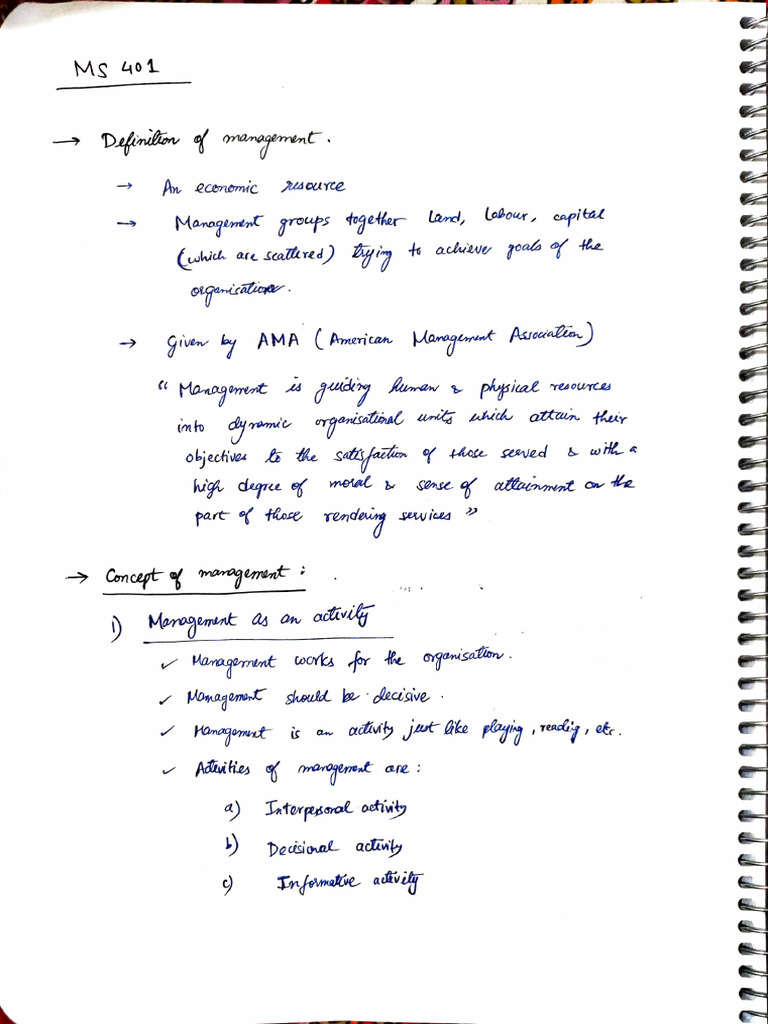 MS 401
→ Definition of management.
→ An economic resource
→ Management groups together land, labour, capital
(which are scattered) trying to achieve goals of the
organisation.
→ Given by AMA (American Management Association)
“ Management is guiding human & physical resources
into dynamic organisational units which attain their
objectives to the satisfaction of those served & with a
high degree of moral & sense of attainment on the
part of those rendering services ”
→ Concept of management :
1) Management as an activity
✓ Management works for the organisation.
✓ Management should be decisive.
✓ Management is an activity just like playing, readig, etc.
✓ Activities of management are :
a) Interpersonal activity
b) Decisional activity
c) Informative activity